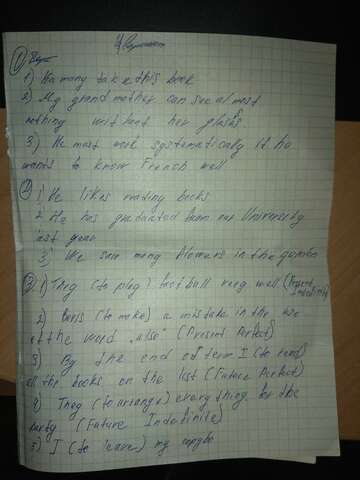 1) How many take this book
2) My grandmother can see almost
nothing without her glasses
3) He must work systematicaly if he
wants to know French well
2 1) He likes reading books
2 He has graduated from our University
last year
3) We saw many flowers in the garden
3. 1) They (to play) football very well (Present Indefinite)
2) Boris (to make) a mistake in the use
of the word "also" (Present Perfect)
3) By the end of term I (to read)
all the books on the list (Future Perfect)
4) They (to arrange) everything for the
party (Future Indefinite)
5) I (to leave) my